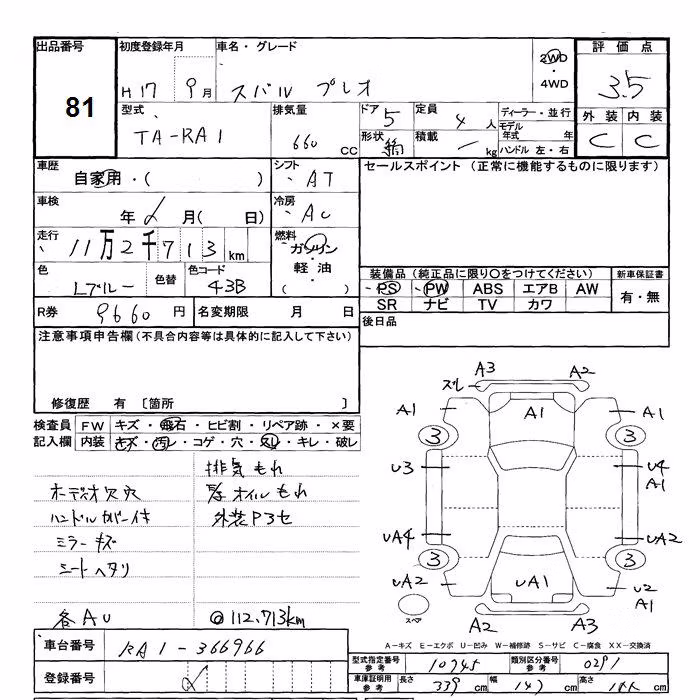 出品番号 初度登録年月 車名・グレード 評価点
81
H17 9月 スバル プレオ 2WD ・4WD 3.5
型式 排気量 ドア 5 定員 4人 ディーラー・並行 外装 内装
TA-RA1 660 cc 形状 積載 kg モデル年式 年 ハンドル 左・右 C C
車歴 シフト セールスポイント (正常に機能するものに限ります)
自家用・( ) AT
車検 冷房
年 月( 日) AC
走行 燃料
11万2千713km ガソリン
軽油
( )
色 色替 色コード 装備品(純正品に限り○をつけてください) 新車保証書
Lブルー 43B PS PW ABS エアB AW 有・無
SR ナビ TV カワ
R券 9660円 名変期限 月 日 後日品
注意事項申告欄(不具合内容等は具体的に記入して下さい)
修復歴 有 〔箇所 〕
検査員 FW キズ・飛石・ヒビ割・リペア跡・×要
記入欄 内装 キズ・汚レ・コゲ・穴・スレ・キレ・破レ
排気もれ
オーディオ欠穴 オイルもれ
ハンドルカバー付 外装P3セ
ミラーキズ
シートヘタリ
各AU @112,713km
A3 A2
スレ
A1 A1 A1
3 3
U3 U4
A1
UA4 UA2
3 3
UA2 UA1 U2
A1
スペア A2 A3
A-キズ E-エクボ U-凹み W-補修跡 S-サビ C-腐食 XX-交換済
車台番号 RA1-366966
型式指定番号 参考 10745 類別区分番号 参考 0291
登録番号
車庫証明用 参考 長さ 339cm 幅 147cm 高さ cm